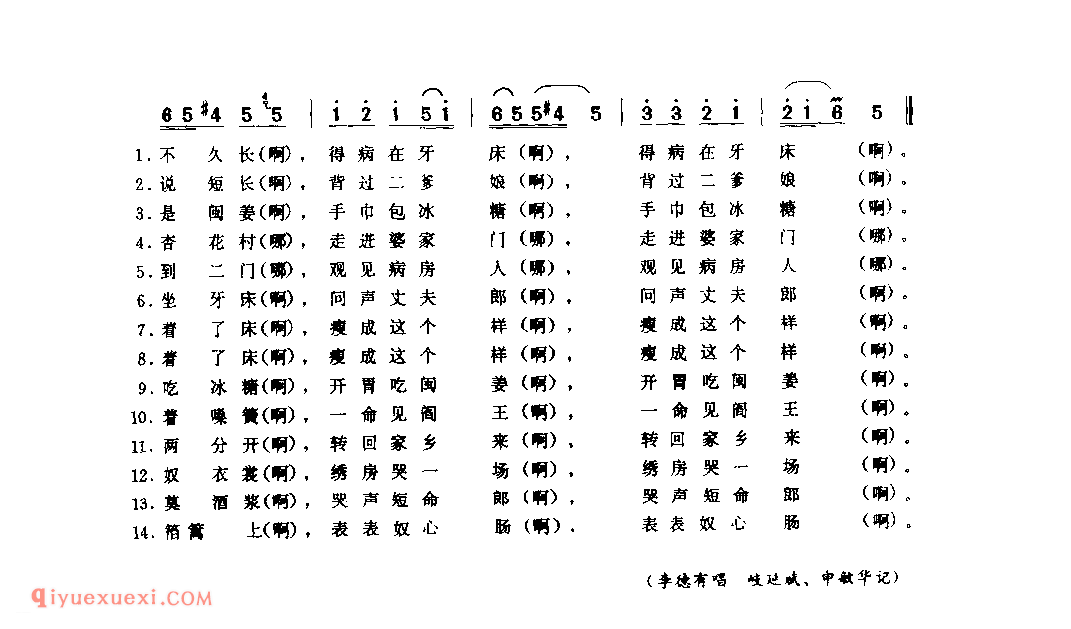 6 5 #4 5 5 | 1 2 1 5 1 | 6 5 5 #4 5 | 3 3 2 1 | 2 1 6 5 ‖
1.不久长(啊),得病在牙床(啊),得病在牙床(啊)。
2.说短长(啊),背过二爹娘(啊),背过二爹娘(啊)。
3.是闽姜(啊),手巾包冰糖(啊),手巾包冰糖(啊)。
4.杏花村(哪),走进婆家门(哪),走进婆家门(哪)。
5.到二门(哪),观见病房人(哪),观见病房人(哪)。
6.坐牙床(啊),问声丈夫郎(啊),问声丈夫郎(啊)。
7.着了床(啊),瘦成这个样(啊),瘦成这个样(啊)。
8.着了床(啊),瘦成这个样(啊),瘦成这个样(啊)。
9.吃冰糖(啊),开胃吃闽姜(啊),开胃吃闽姜(啊)。
10.着嗓簧(啊),一命见阎王(啊),一命见阎王(啊)。
11.两分开(啊),转回家乡来(啊),转回家乡来(啊)。
12.奴衣裳(啊),绣房哭一场(啊),绣房哭一场(啊)。
13.奠酒浆(啊),哭声短命郎(啊),哭声短命郎(啊)。
14.箔篱上(啊),表表奴心肠(啊),表表奴心肠(啊)。
(李德有唱 岐延斌、申敏华记)
qiyuexuexi.COM